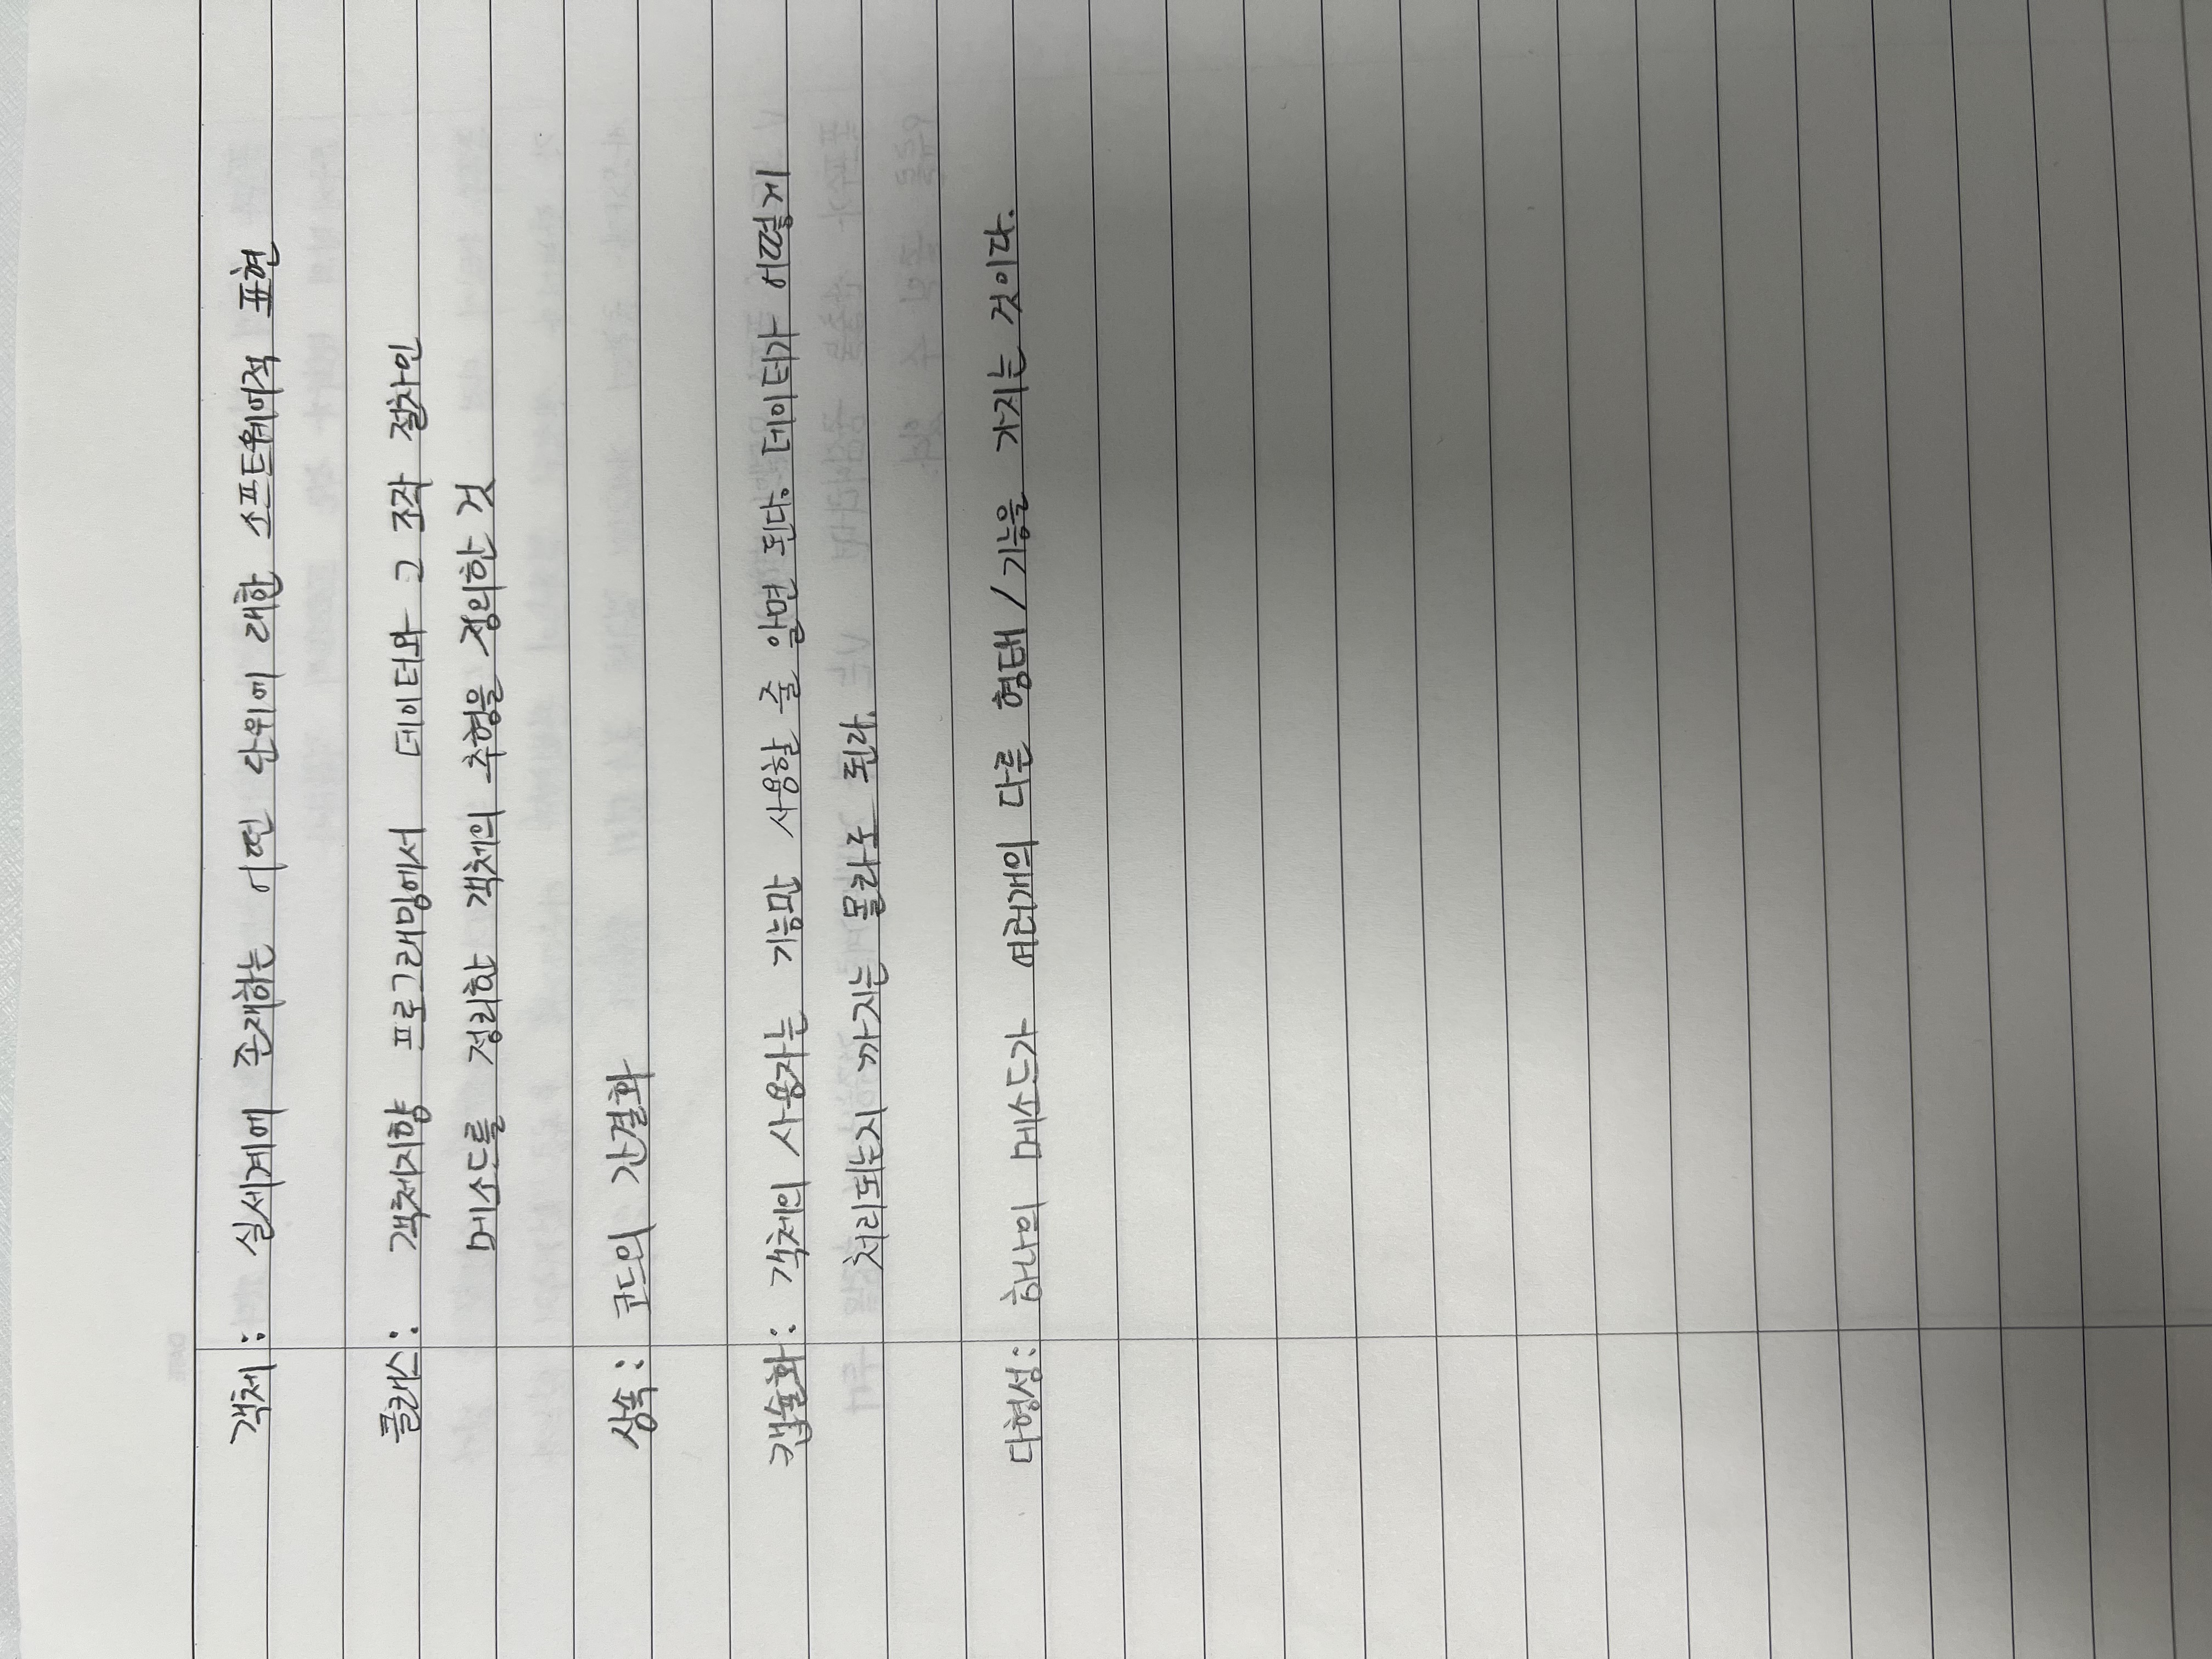 객체 : 실세계에 존재하는 어떤 단위에 대한 소프트웨어적 표현
클래스 : 객체지향 프로그래밍에서 데이터와 그 조작 절차인
메소드를 정리한 객체의 추형을 정의한 것
상속 : 코드의 간결화
캡슐화 : 객체의 사용자는 기능만 사용할 줄 알면 된다. 데이터가 어떻게
처리되는지 까지는 몰라도 된다.
다형성 : 하나의 메소드가 여러개의 다른 형태 / 기능을 가지는 것이다.